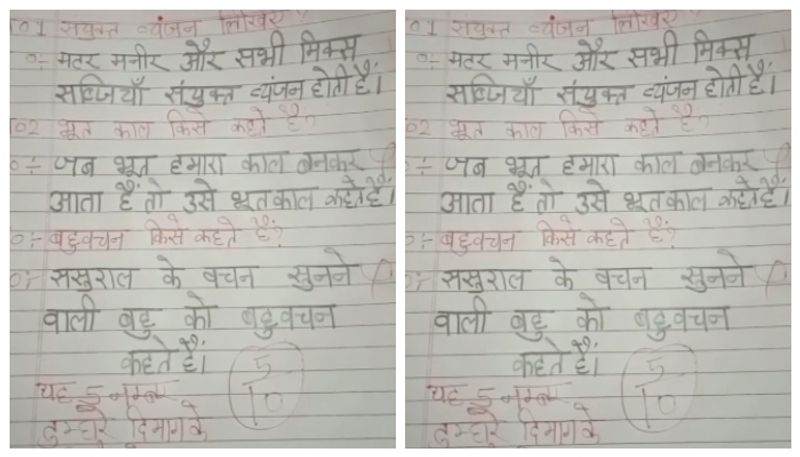 01 संयुक्त व्यंजन लिखिए?
0:- मटर मनीर और सभी मिक्स
सब्जियाँ संयुक्त व्यंजन होती हैं।
02 भूत काल किसे कहते है?
0:- जब भूत हमारा काल बनकर
आता हैं तो उसे भूतकाल कहते हैं।
0:- बहुवचन किसे कहते हैं?
0:- ससुराल के वचन सुनने
वाली बहु को बहुवचन
कहते हैं।
5/10
यह 5 नम्बर
तुम्हारे दिमाग के
01 संयुक्त व्यंजन लिखिए?
0:- मटर मनीर और सभी मिक्स
सब्जियाँ संयुक्त व्यंजन होती हैं।
02 भूत काल किसे कहते है?
:- जब भूत हमारा काल बनकर
आता हैं तो उसे भूतकाल कहते हैं।
0:- बहुवचन किसे कहते हैं?
0:- ससुराल के वचन सुनने
वाली बहु को बहुवचन
कहते हैं।
5/10
यह 5 नम्बर
तुम्हारे दिमाग के